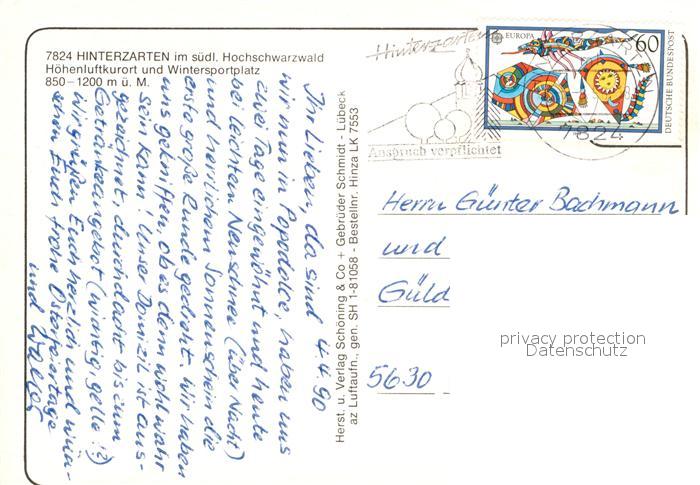 7824 HINTERZARTEN im südl. Hochschwarzwald
Höhenluftkurort und Wintersportplatz
850–1200 m ü. M.
4.4.90
Ihr Lieben, da sind
wir nun in Popodolce, haben uns
zwei Tage eingewöhnt und heute
bei leichtem Neuschnee (über Nacht)
und herrlichem Sonnenschein die
erste große Runde gedreht. Wir haben
uns gekniffen, ob es denn wohl wahr
sein kann! Unser Domizil ist aus-
gezeichnet, durchdacht bis zum
Getränkeangebot (wichtig, gelle!?)
Wir grüßen Euch herzlich und wün-
schen Euch frohe Osterfeiertage
und
Herst. u. Verlag Schöning & Co + Gebrüder Schmidt - Lübeck
az Luftaufn., gen. SH 1-81058 - Bestellnr. Hinza LK 7553
Hinterzarten
Anspruch verpflichtet
7824
EUROPA
60
DEUTSCHE BUNDESPOST
Herrn Günter Bachmann
und
Güld
5630
privacy protection
Datenschutz